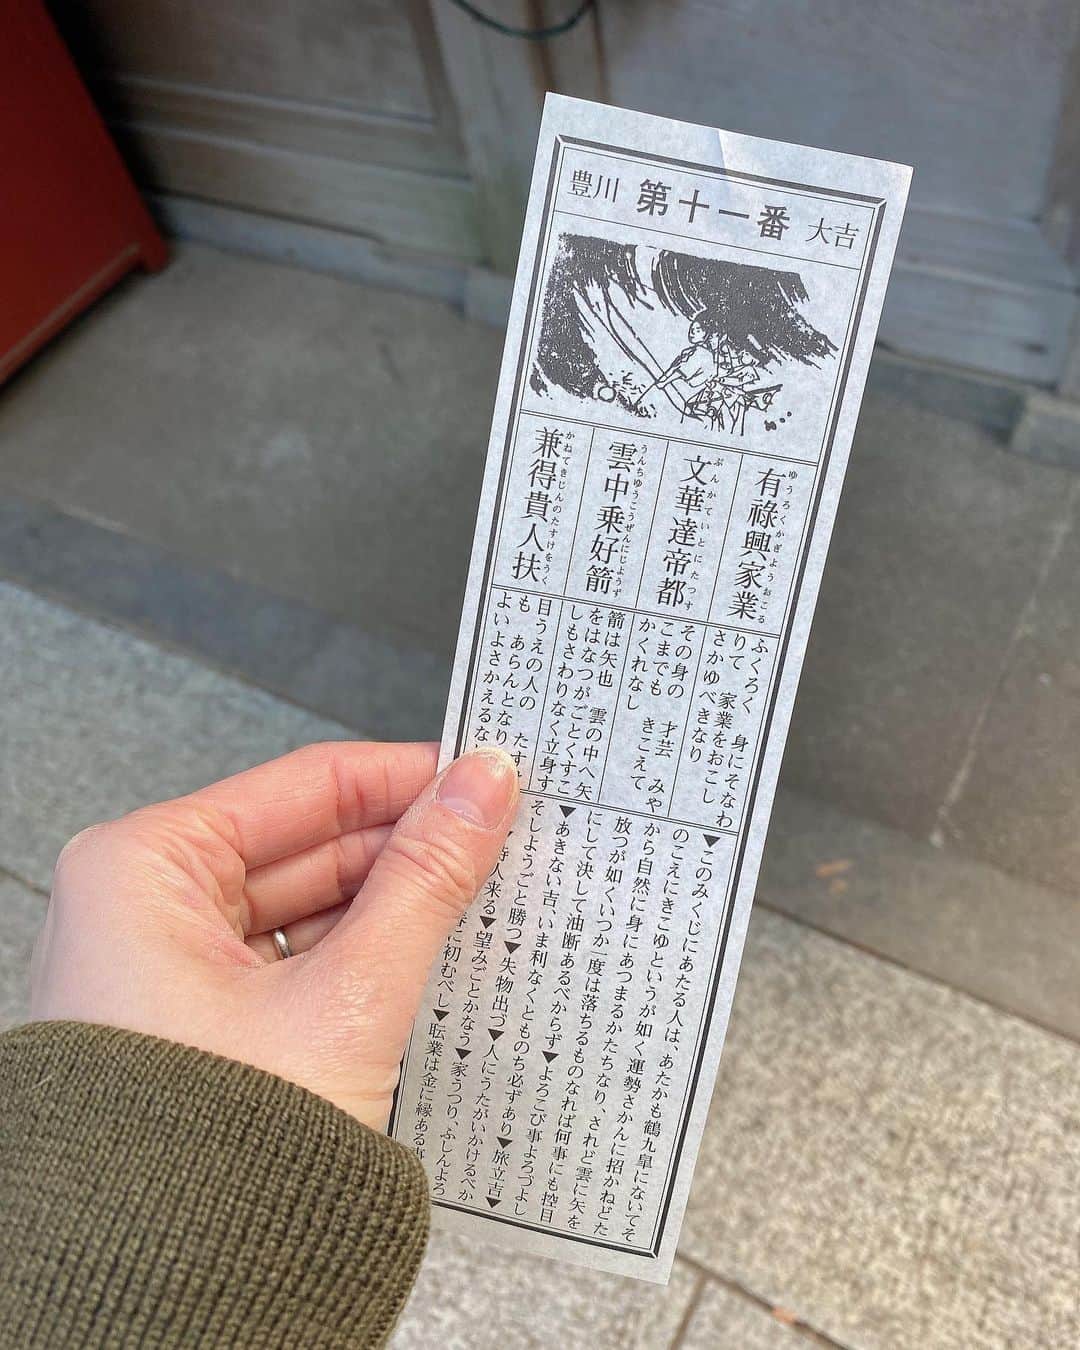 豊川 第十一番 大吉
有祿興家業
ゆうろくかぎようおこる
文華達帝都
ぶんかていとにたつす
雲中乗好箭
うんちゆうこうぜんにじようず
兼得貴人扶
かねてきじんのたすけをうく
ふくろく 身にそなわ
りて 家業をおこし
さかゆべきなり
その身の 才芸 みや
こまでも きこえて
かくれなし
箭は矢也 雲の中へ矢
をはなつがごとくすこ
しもさわりなく立身す
目うえの人の たすけ
も あらんとなり
よいよさかえるな
▼このみくじにあたる人は、あたかも鶴九皐にないてそ
のこえにきこゆというが如く運勢さかんに招かねどた
から自然に身にあつまるかたちなり、されど雲に矢を
放つが如くいつか一度は落ちるものなれば何事にも控目
にして決して油断あるべからず▼よろこび事よろづよし
▼あきない吉、いま利なくとものち必ずあり▼旅立吉▼
そしようごと勝つ▼失物出づ▼人にうたがいかけるべか
待人来る▼望みごとかなう▼家うつり、ふしんよろ
に初むべし▼転業は金に縁ある